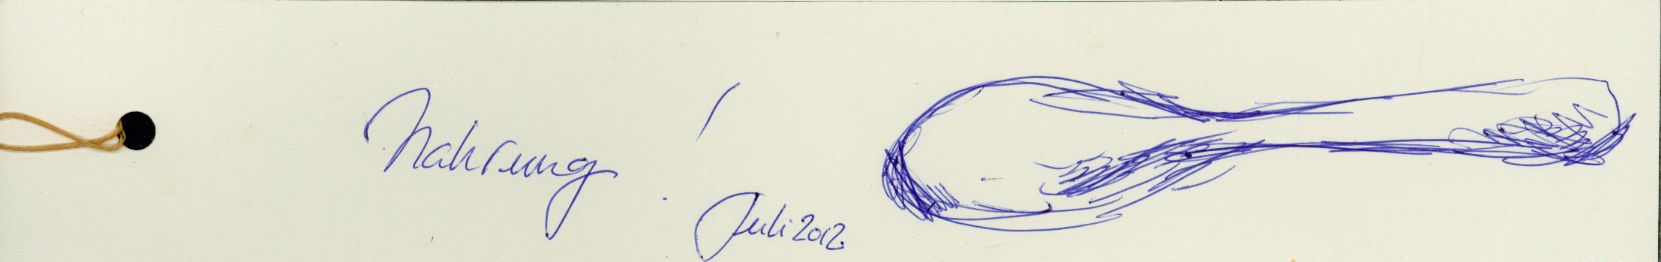 Nahrung!
Juli 2012